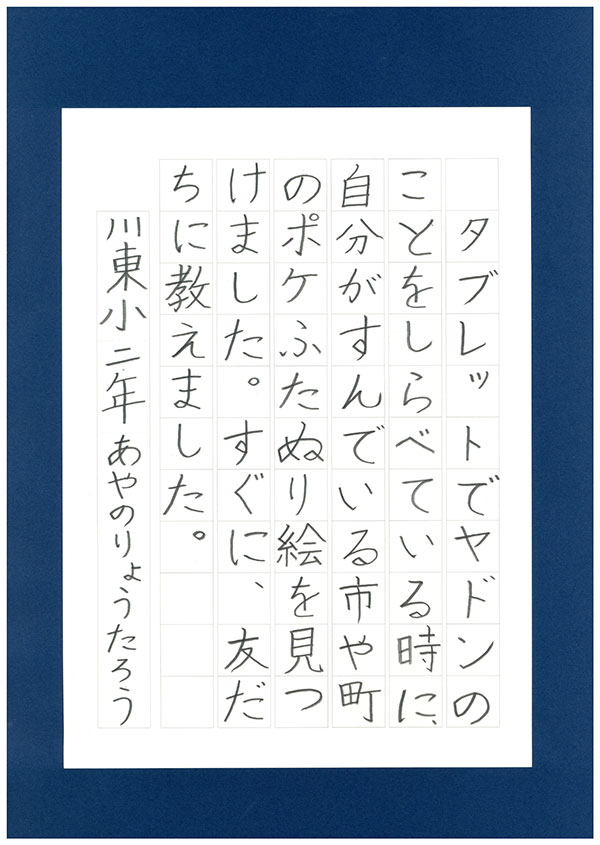 タブレットでヤドンの
ことをしらべている時に、
自分がすんでいる市や町
のポケふたぬり絵を見つ
けました。すぐに、友だ
ちに教えました。
川東小二年あやのりょうたろう